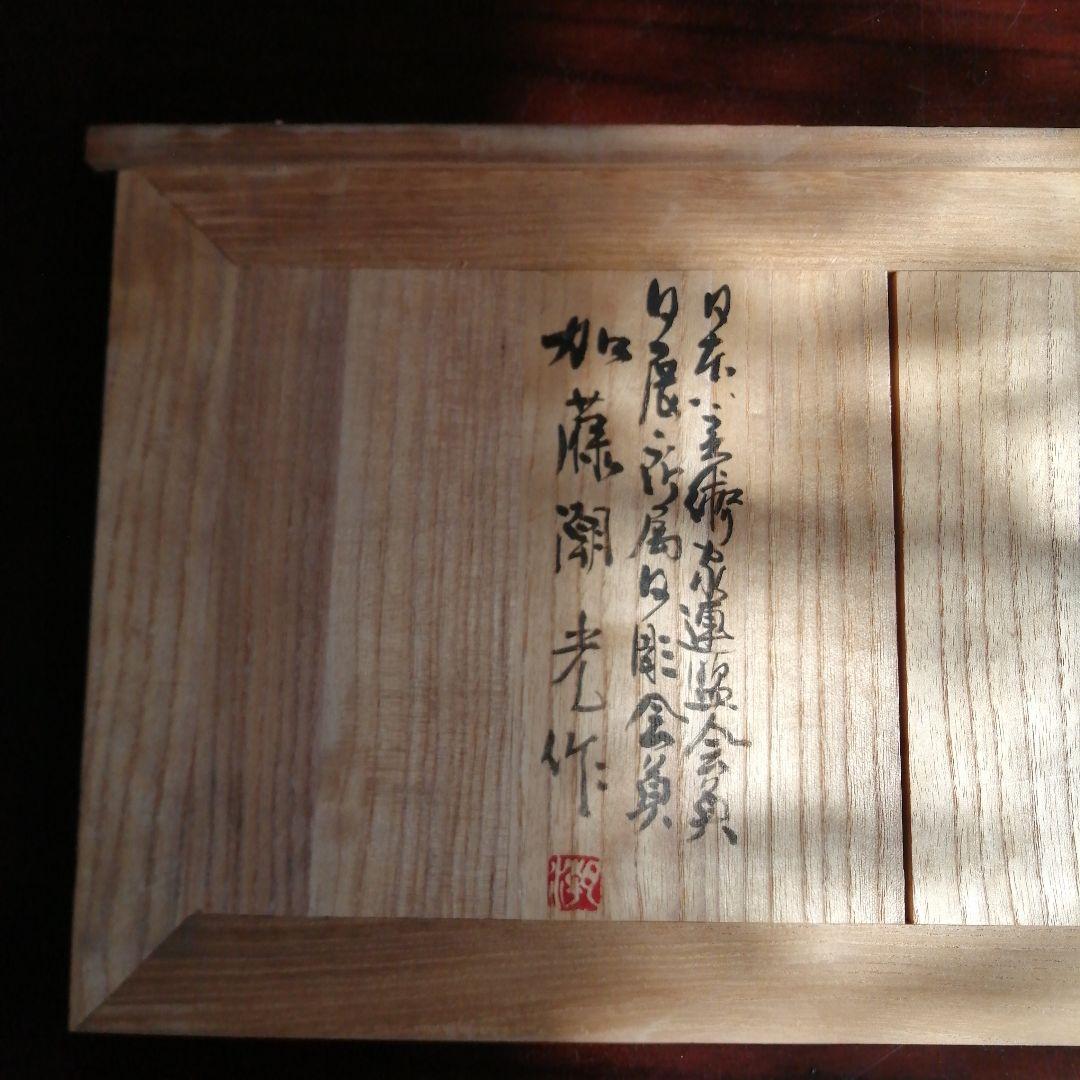 日本美術家連盟会員
日展所属日彫会員
加藤潮光作